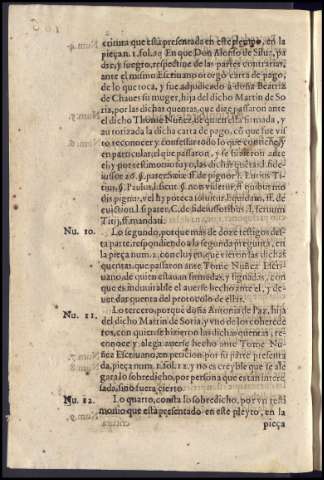 critura que està presentada en este pleyto, en la
pieça n. 1. fol. 20. En que Don Alonso de Silua, pa
dre, y suegro, respectiue de las partes contrarias,
ante el mismo Escriuano otorgò carta de pago,
de lo que toca, y fue adjudicado à doña Beatriz
de Chaues su muger, hija del dicho Martin de So
ria, por las dichas quentas, que dize passaron ante
el dicho Thome Nuñez, de quien està firmada, y
autorizada la dicha carta de pago, cõ que fue vis
to reconocer, y confessar todo lo que contiene, y
en particular, el que passaron, y se hizieron ante
el, y por testimonio suyo, las dichas quentas, l. fide
iussor 26. §. pater, Seiæ ff. de pignor. l. Lucius Ti
tius, §. Paulus, l. sicut §. non videtur, ff. quibus mo
dis pignus, vel hypoteca soluitur, l. quidam, ff. de
euiction. l. si pater, C. de fideiussoribus, l. seruum
Titij, ff. mandati.
Nu. 10. Lo segundo, porque mas de doze testigos des
ta parte, respondiendo a la segunda pregunta, en
la pieça num. 2. concluyen, que vieron las dichas
quentas, que passaron ante Tome Nuñez Escri
uano, de quien estauan firmadas, y signadas, con
que es induuitable el auerse hecho ante el, y de
uer dar quenta del protocolo de ellas.
Nu. 11. Lo tercero, porque doña Antonia de Paz, hija
del dicho Martin de Soria, y vno de los cohered e
ros, con quien se hizieron las dichas quentas, re
conoce y alega auerse hecho ante Tome Nu
ñez Escriuano, en peticion por su parte presenta
da, pieça num. 1. fol. 12. y no es creyble que se ale
gara lo sobredicho, por persona que es tan interes
sada, sino fuera cierto.
Nu. 12. Lo quarto, consta lo sobredicho, por vn testi
monio que està presentado en este pleyto, en la
pieça